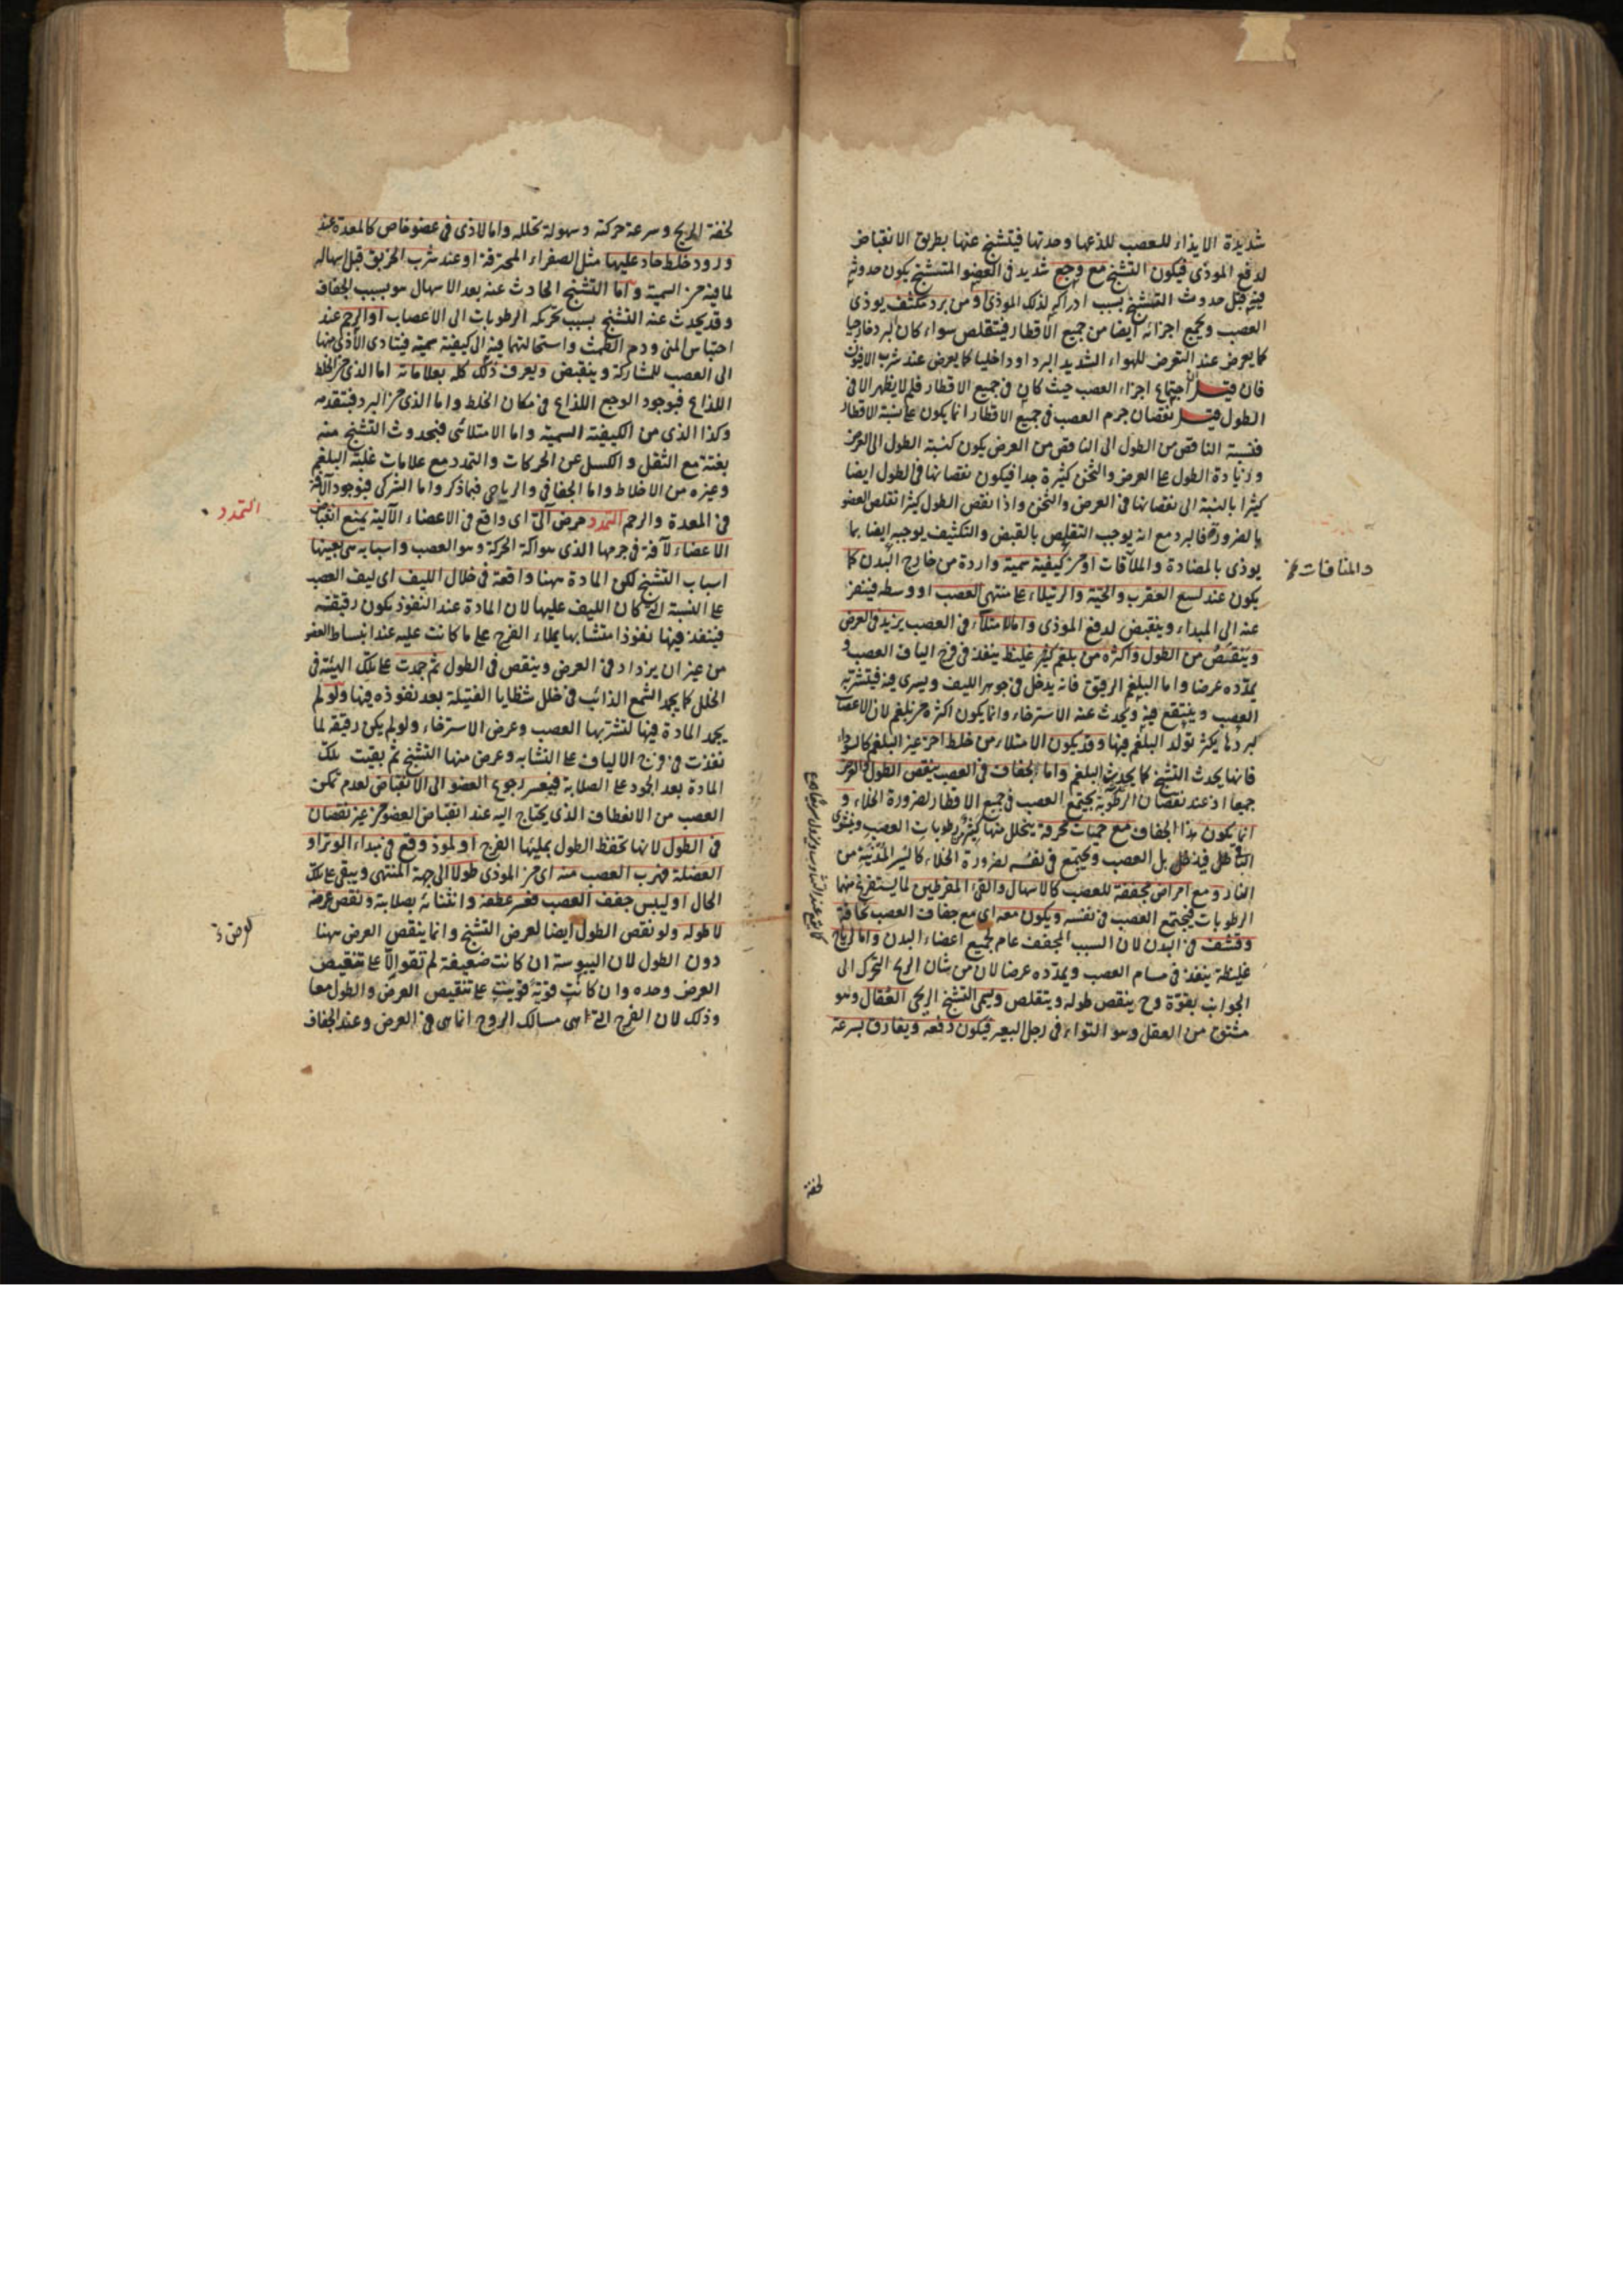 شديدة الايذاء للعصب للذعها وحدتها فيتشنج عنها بطريق الانقباض
لدفع الموذى فيكون التشنج مع وجع شديد فى العضو المتشنج يكون حدوثه
فيه قبل حدوث التشنج بسبب ادراكه لذلك الموذى او من برد مكثف يوذى
العصب ويجمع اجزائه ايضا من جميع الاقطار فيتقلص سواء كان البرد خارجيا
كما يعرض عند التعرض للهواء الشديد البرد او داخليا كما يعرض عند شرب الافيون
فان قيل اجتماع اجزاء العصب حيث كان فى جميع الاقطار فلم لا يظهر الا فى
الطول قيل نقصان جرم العصب فى جميع الاقطار انما يكون على نسبة الاقطار
فنسبة الناقص من الطول الى الناقص من العرض يكون كنسبة الطول الى العرض
وزيادة الطول على العرض والثخن كثيرة جدا فيكون نقصانها فى الطول ايضا
كثيرا بالنسبة الى نقصانها فى العرض والثخن واذا نقص الطول كثيرا تقلص العضو
بالضرورة فالبرد مع انه يوجب التقلص بالقبض والتكثيف يوجبه ايضا بما
يوذى بالمضادة والملاقات او من كيفية سمية واردة من خارج البدن كما
والمنافات
يكون عند لسع العقرب والحية والرتيلاء على منتهى العصب او وسطه فينفر
عنه الى المبداء وينقبض لدفع الموذى واما لامتلاء فى العصب يزيد فى العرض
وينقص من الطول واكثره من بلغم غليظ ينفذ فى فرج الياف العصب و
يمدده عرضا واما البلغم الرقيق فانه يدخل فى جوهر الليف ويسرى فيه فيتشربه
العصب وينتقع فيه ويحدث عنه الاسترخاء وانما يكون اكثره من بلغم لان الاعصاب
لبردها يكثر تولد البلغم فيها وقد يكون الامتلاء من خلط اخر غير البلغم كالسوداء
فانها يحدث التشنج كما يحدث البلغم واما لجفاف فى العصب ينقص الطول والعرض
جميعا اذ عند نقصان الرطوبة يجتمع العصب فى جميع الاقطار لضرورة الخلاء و
انما يكون هذا الجفاف مع حميات محرقة يتحلل منها كثير رطوبات العصب
بل العصب ويجتمع فى نفسه لضرورة الخلاء كالسير المدنية من
النار ومع امراض مجففة للعصب كالاسهال والقئ المفرطين لما يستفرغ منها
الرطوبات فيجتمع العصب فى نفسه ويكون معه اى مع جفاف العصب نحافة
وقشف فى البدن لان السبب المجفف عام لجميع اعضاء البدن واما لرياح
غليظة ينفذ فى مسام العصب ويمدده عرضا لان من شان الريح التحرك الى
الجوانب بقوة وح ينقص طوله ويتقلص ويسمى التشنج الريحى العقال وهو
مشتق من العقل وهو التواء فى رجل البعير فيكون دفعه ويفارق بسرعة
لخفة
لخفة الريح وسرعة حركته وسهولة تحلله واما لاذى فى عضو خاص كالمعدة عند
ورود خلط حاد عليها مثل الصفراء المحترقة او عند شرب الخربق قبل اسهاله
لما فيه من السمية واما التشنج الحادث عنه بعد الاسهال هو بسبب الجفاف
وقد يحدث عنه التشنج بسبب تحركه الرطوبات الى الاعصاب او الرحم عند
احتباس المنى ودم الطمث واستحالتهما فيه الى كيفية سمية فيتادى الاذى منها
الى العصب للمشاركة وينقبض ويعرف ذلك كله بعلاماته اما الذى من الخلط
اللذاع فبوجود الوجع اللذاع فى مكان الخلط واما الذى من البرد فبتقدمه
وكذا الذى من الكيفية السمية واما الامتلائى فبحدوث التشنج منه
بغتة مع الثقل والكسل عن الحركات والتمدد مع علامات غلبة البلغم
وغيره من الاخلاط واما الجفافى والرياحى فبما ذكر واما الشركى فبوجود الافة
فى المعدة والرحم التمدد مرض آلى اى واقع فى الاعضاء الآلية يمنع انقباض
التمدد
الاعضاء لآفة فى جرمها الذى هو آلة الحركة وهو العصب واسبابه هى بعينها
اسباب التشنج لكن المادة ههنا واقعة فى خلال الليف اى ليف العصب
على النسبة التى كان الليف عليها لان المادة عند النفوذ يكون رقيقة
فينفذ فيها نفوذا متشابها يملاء الفرج على ما كانت عليه عند انبساط العضو
من غير ان يزداد فى العرض وينقص فى الطول ثم جمدت على تلك الهيئة فى
الخلل كما يجمد الشمع الذائب فى خلل شظايا الفتيلة بعد نفوذه فيها ولو لم
يجمد المادة فيها لتشربها العصب وعرض الاسترخاء ولو لم يكن رقيقة لما
نفذت فى فرج الالياف على التشابه وعرض منها التشنج ثم بقيت تلك
المادة بعد الجمود على الصلابة فيعسر رجوع العضو الى الانقباض لعدم تمكن
العصب من الانعطاف الذى يحتاج اليه عند انقباض العضو من غير نقصان
فى الطول لانها تحفظ الطول بمليها الفرج او لموذ وقع فى مبداء الوتر او
العضلة فهرب العصب منه اى من الموذى طولا الى جهة المنتهى ويبقى على تلك
الحال او ليبس جفف العصب فعسر عطفه وانثنائه بصلابته ونقص عرضه
لا طوله ولو نقص الطول ايضا لعرض التشنج وانما ينقص العرض ههنا
دون الطول لان اليبوسة ان كانت ضعيفة لم تقو الا على تنقيص
العرض وحده وان كانت قوية قويت على تنقيص العرض والطول معا
وذلك لان الفرج التى هى مسالك الروح انما هى فى العرض وعند الجفاف